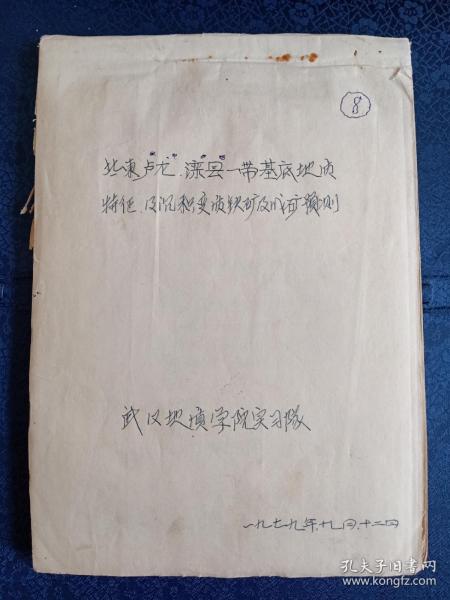 ⑧
北东卢龙.滦县一带基底地质
特征.及沉积变质铁矿及成矿预测
武汉地质学院实习队
一九七九年.十月.十二日
孔夫子旧书网
www.kongfz.com